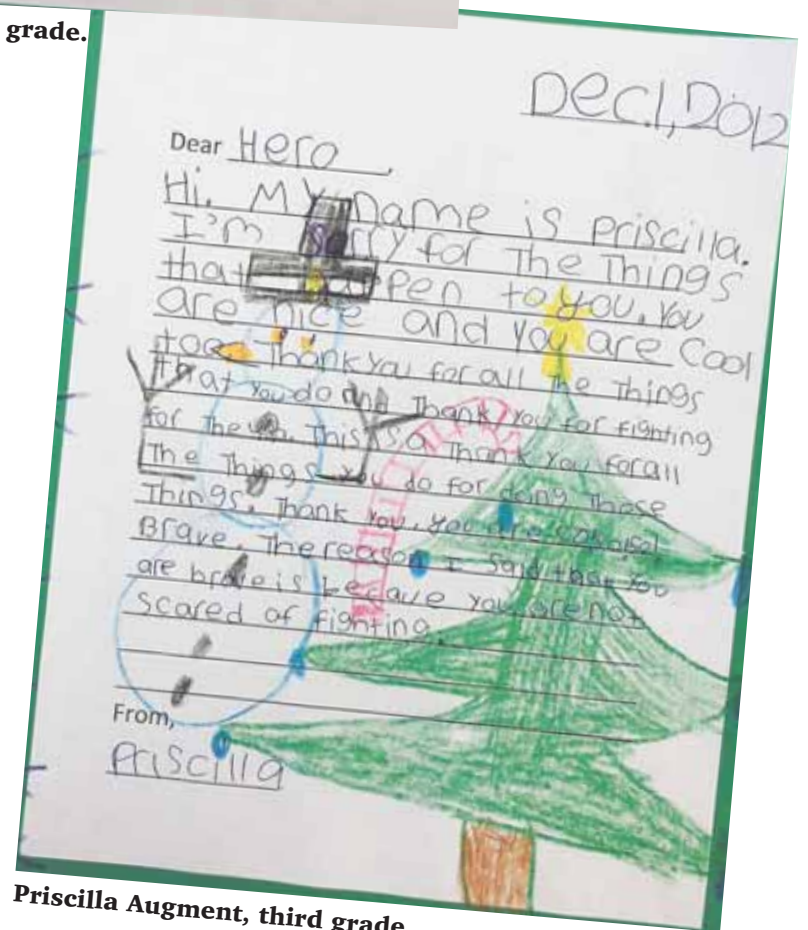 grade.
Dec.1, 2012
Dear Hero,
Hi. My name is Priscilla.
I'm sorry for The Things
that happen to you. You
are nice and you are Cool
too. Thank you for all The Things
That you do and Thank you for fighting
for the us. This is a Thank you for all
The Things you do for doing those
Things. Thank you. you are
Brave. The reason I said that You
are brave is becaue you are not
Scared of fighting.
From,
Priscilla
Priscilla Augment, third grade